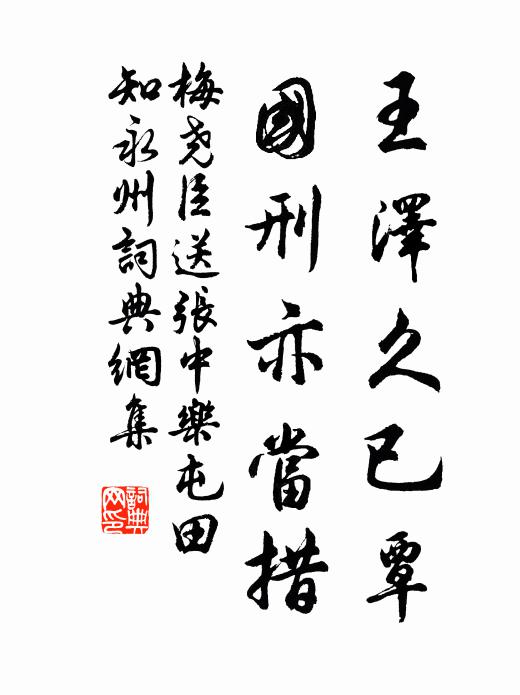 王澤久已覃
國刑亦當措
梅堯臣送張中樂屯田
知永州詞典網集
詞典
网印